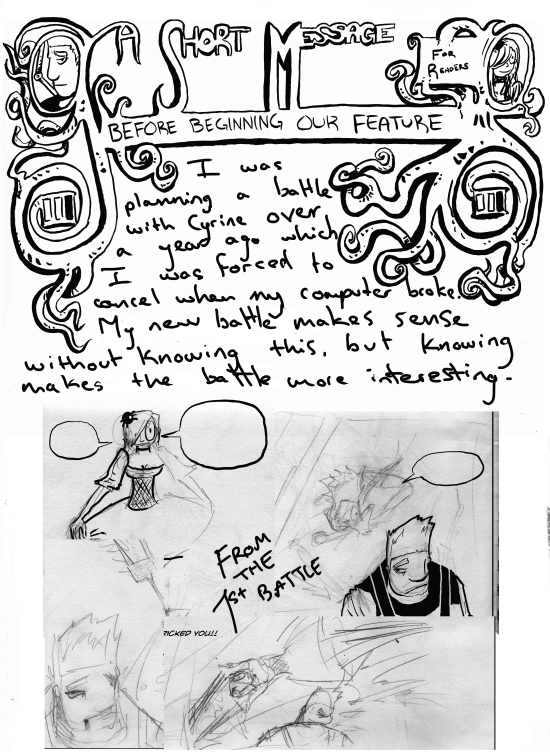 A SHORT MESSAGE
FOR
READERS
BEFORE BEGINNING OUR FEATURE
I was
planning a battle
with Cyrine over
a year ago which
I was forced to
cancel when my computer broke.
My new battle makes sense
without knowing this, but knowing
makes the battle more interesting.
FROM
THE
1st BATTLE
RICKED YOU!!